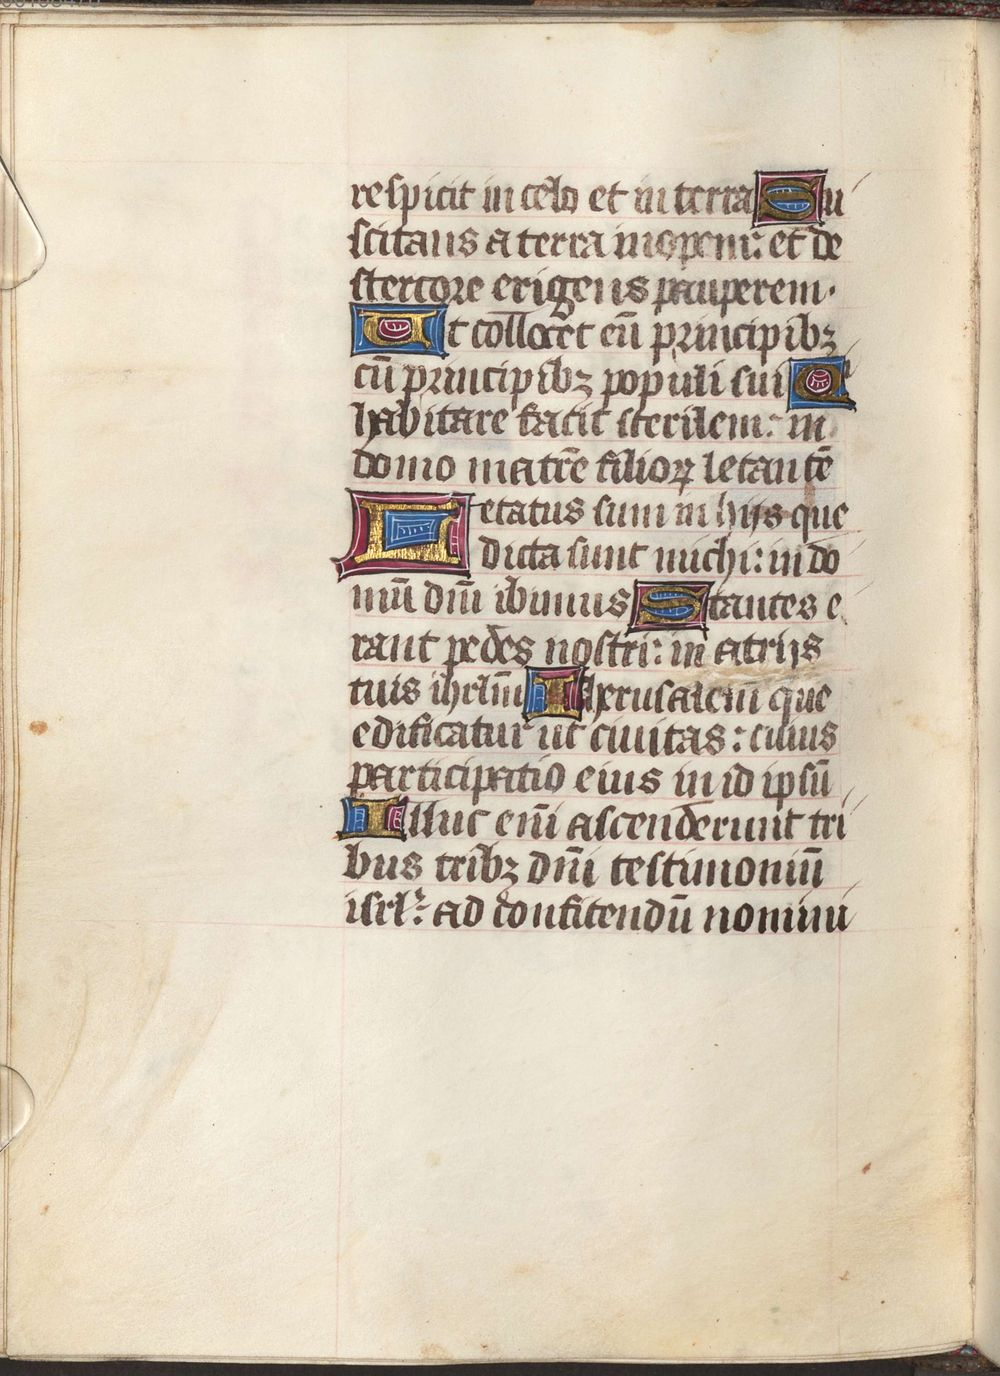 respicit in celo et in terra Su
scitans a terra inopem: et de
stercore erigens pauperem.
Ut colloc̅et eū principibꝫ
cū principibꝫ populi sui Qͥ
habitare facit sterilem: in
domo matrē filioꝝ letantē
Letatus sum in hijs que
dicta sunt michi: in do
mū dn̄i ibimus Stantes e
rant pedes nostri: in atrijs
tuis ihrl̄m Iherusalem que
edificatur ut ciuitas: cuius
participatio eius in id ipsū
Illuc em̄i ascenderunt tri
bus tribꝫ dn̄i testimoniū
isrl̄: ad confitendū nomini